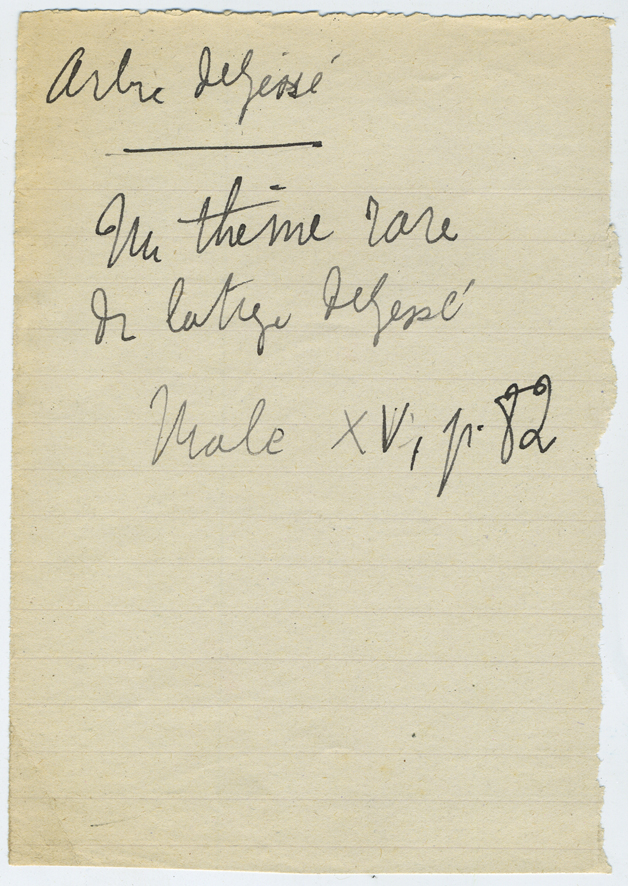 Arbre de Jessé
Un thème rare
de la tige de Jessé
Male XV, p. 82